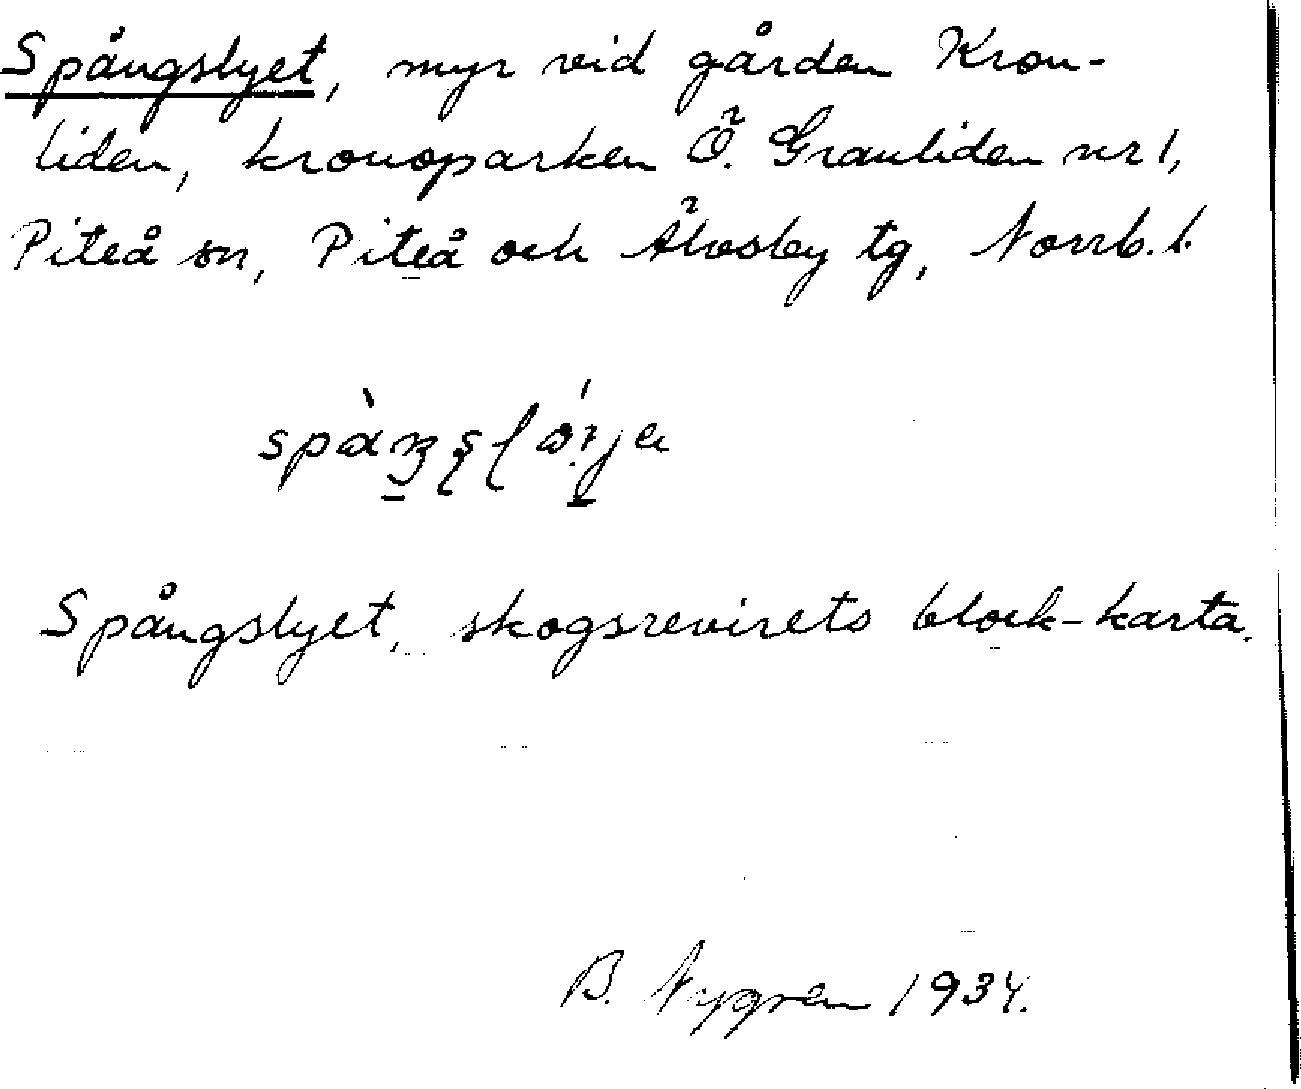 Spångslyet, myr vid gården Kron-
liden, kronoparken Ö. Granliden nr 1,
Piteå sn, Piteå och Älvsby tg, Norrb. l.
Spångslyet, skogsrevirets block-karta.
B. Nygren 1934.